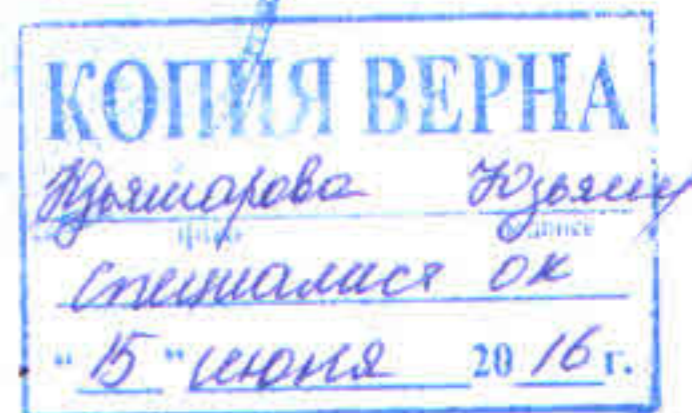 КОПИЯ ВЕРНА
Юзьяшарова Юзьяш
подпись
специалист ОК
"15" июня 2016 г.